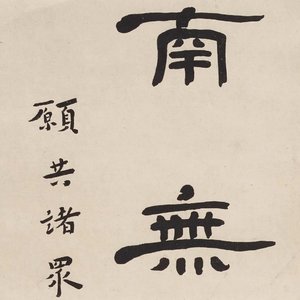 南無
願共諸眾